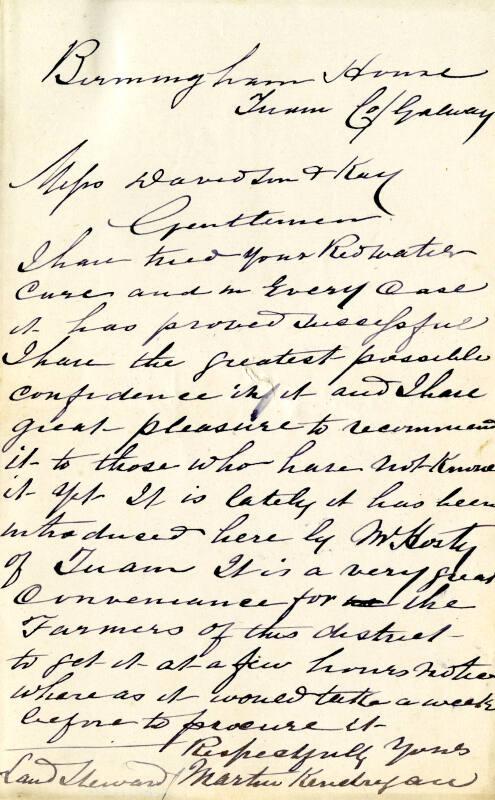 Birmingham House
Tuam Co/ Galway
Messrs Davidson & Kay
Gentlemen
I have tried your Redwater
Cure and in Every Case
it has proved successful
I have the greatest possible
confidence in it and I have
great pleasure to recommend
it to those who have not Known
it yet It is lately it has been
introduced here by Mr Hosty
of Tuam It is a very great
Conveniance for the
Farmers of this district
to get it at a few hours notice
where as it would take a week
before to procure it
Respectfully Yours
Land Steward / Martin Kendregan